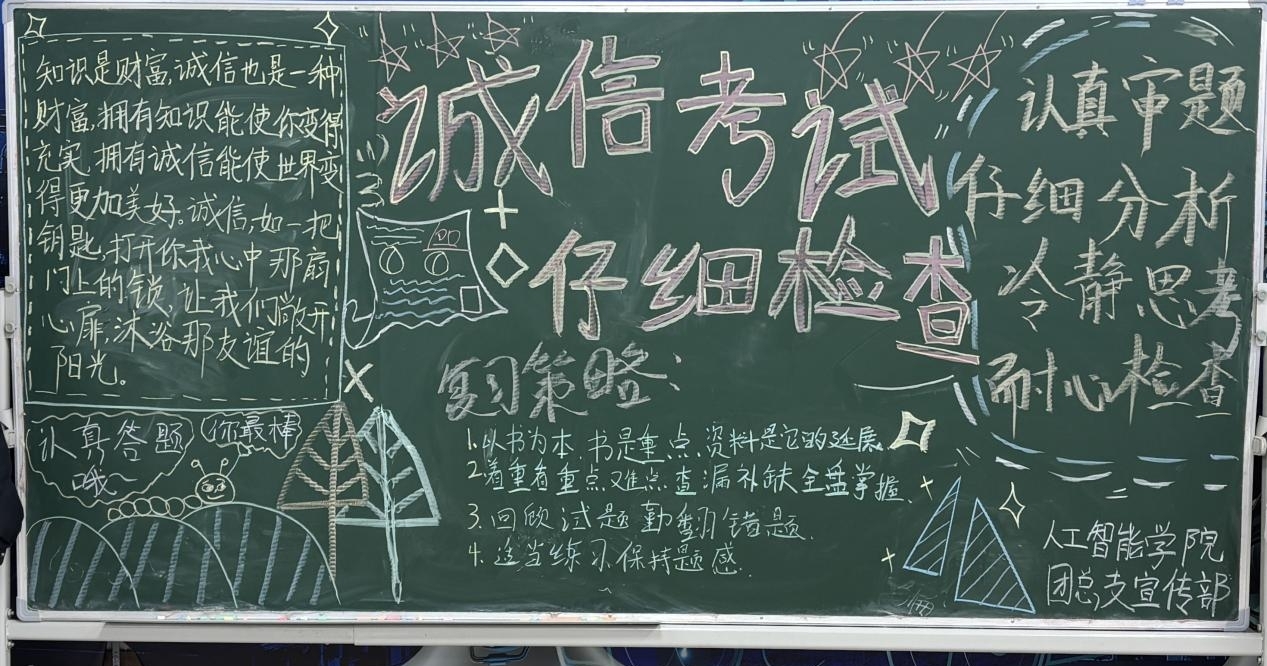 知识是财富,诚信也是一种
财富,拥有知识能使你变得
充实,拥有诚信能使世界变
得更加美好。诚信,如一把
钥匙,打开你我心中那扇
门上的锁,让我们敞开
心扉,沐浴那友谊的
阳光。
认真答题
哦~
你最棒
诚信考试
仔细检查
复习策略:
1.以书为本,书是重点,资料是它的延展
2.着重看重点,难点,查漏补缺全盘掌握.
3.回顾试题,勤翻错题.
4.适当练习,保持题感.
认真审题
仔细分析
冷静思考
耐心检查
人工智能学院
团总支宣传部